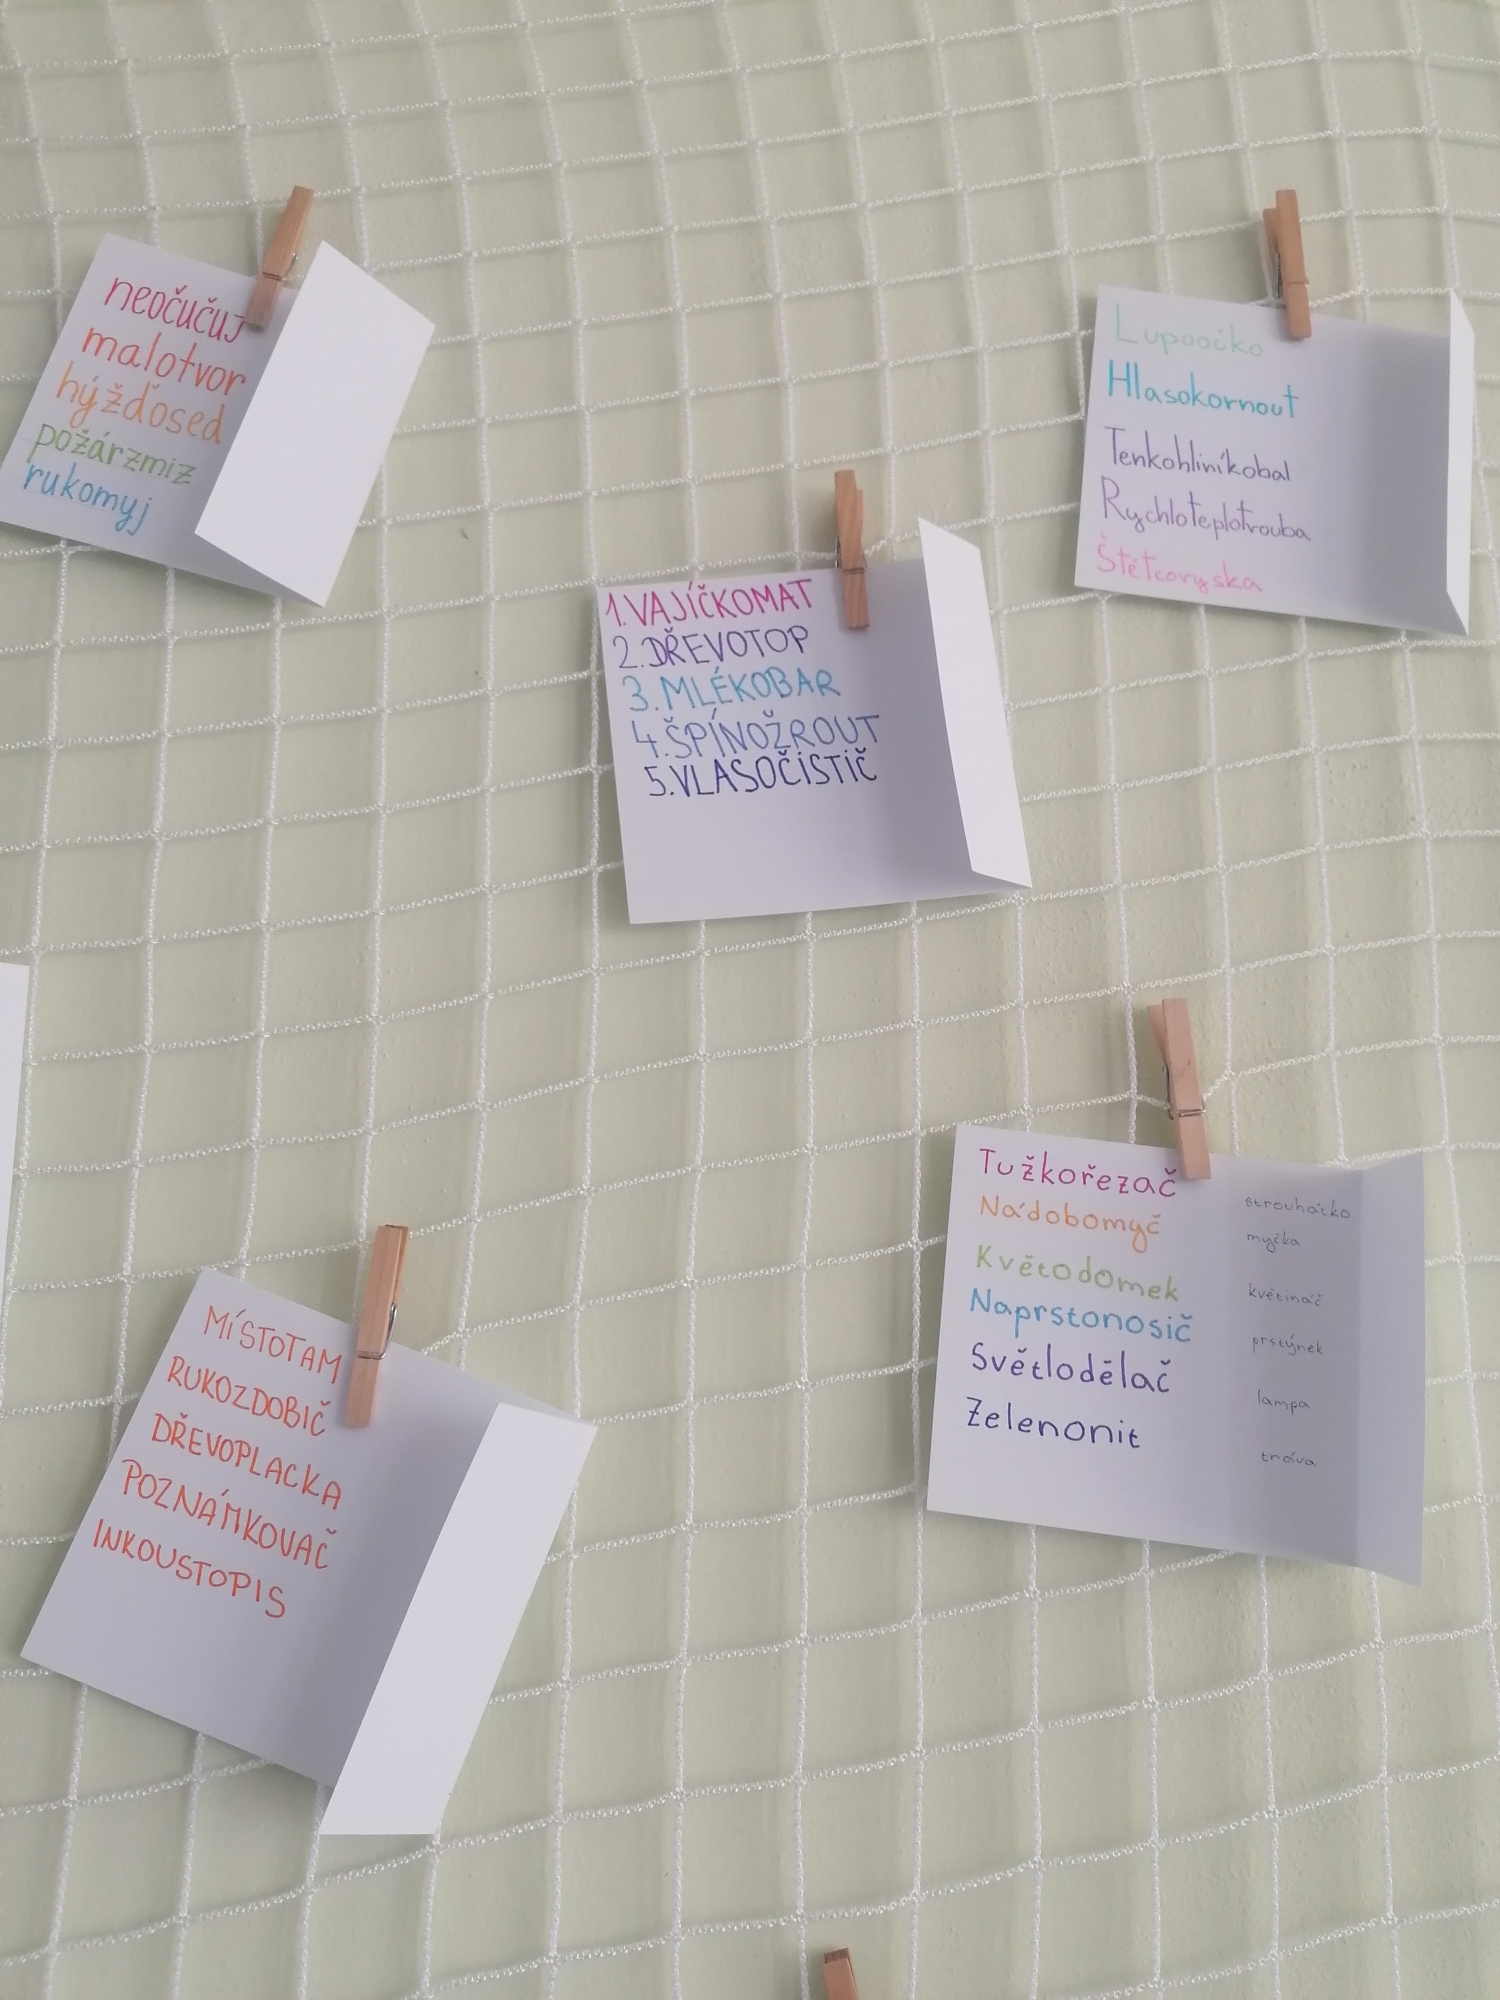 neočučuj
malotvor
hýžďosed
požárzmiz
rukomyj
Lupoočko
Hlasokornout
Tenkohliníkobal
Rychloteplotrouba
Štětcoryska
1. VAJÍČKOMAT
2. DŘEVOTOP
3. MLÉKOBAR
4. ŠPÍNOŽROUT
5. VLASOČISTIČ
Tužkořezač
strouhátko
Nádobomyč
myčka
Květodomek
květináč
Naprstonosič
prstýnek
Světlodělač
lampa
Zelenonit
tráva
MÍSTOTAM
RUKOZDOBIČ
DŘEVOPLACKA
POZNÁMKOVAČ
INKOUSTOPIS